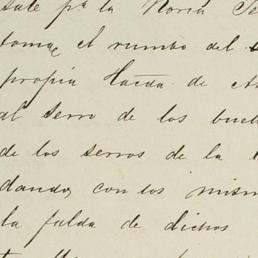 sale pa. la Noria Se
toma, el rumbo del
propia Hacda. de
al serro de los buch
de los serros de la
dando, con los mism
la falda de dichos